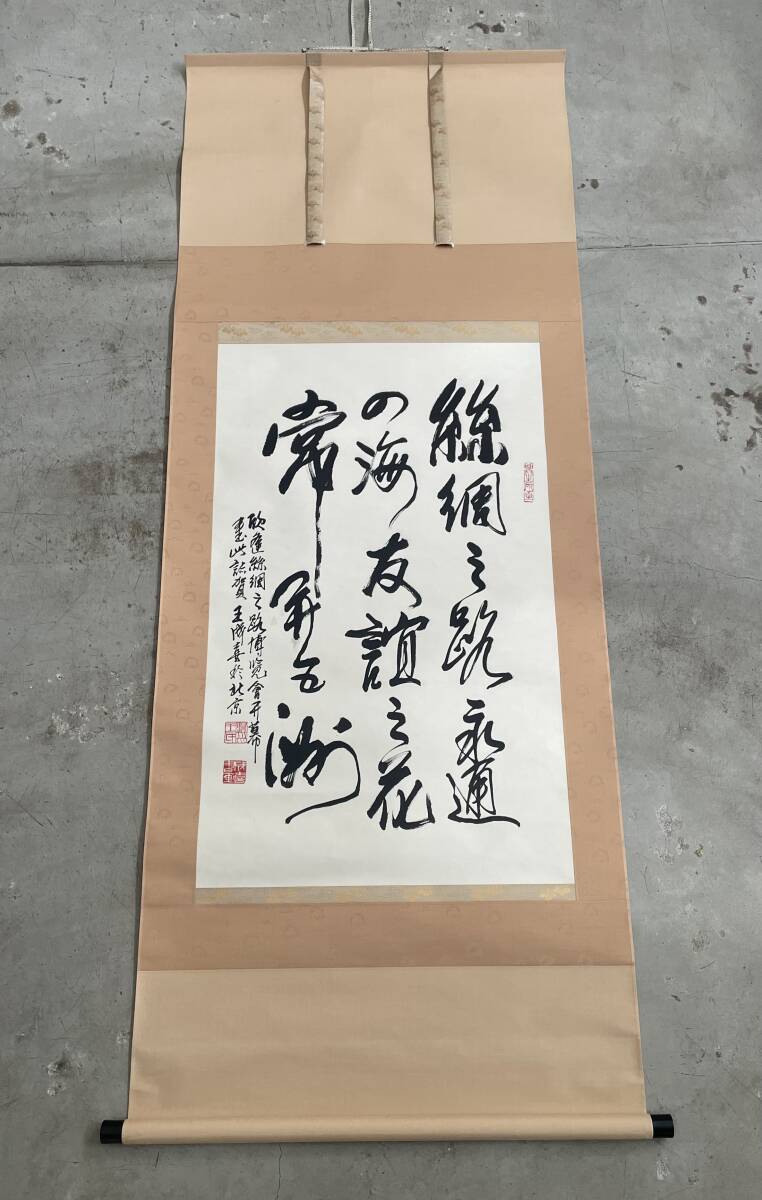 絲綢之路永通
四海友誼之花
常開五洲
欣逢絲綢之路博覽會开幕
書此誌賀 王成喜於北京